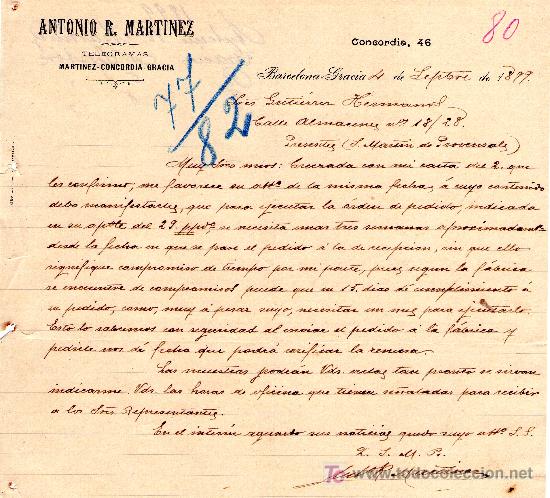 ANTONIO R. MARTINEZ
TELEGRAMAS
MARTINEZ-CONCORDIA GRACIA
Concordia, 46
80
77/82
Barcelona-Gracia 4 de Septbre de 1899.
Sres Gutiérrez Hermanos
Calle Almacenes nº 18/28.
Presente (S. Martín de Provensals)
Muy Sres mios: Cruzada con mi carta del 2. que
les confirmo, me favorece su atta. de la misma fecha, á cuyo contenido
debo manifestarles, que para ejecutar la órden de pedido, indicada
en su apble del 29 ppdo. se necesita mas tres semanas aproximadamte
desde la fecha en que se pase el pedido á la de recepcion, sin que ello
signifique compromiso de tiempo por mi parte, pues segun la fábrica
se encuentre de compromisos puede que en 15 dias dé cumplimiento á
su pedido, como, muy á pesar suyo, necesitar un mes para ejecutarlo.
Esto lo sabremos con seguridad al enviar el pedido á la fábrica y
pedirle nos dé fecha que podrá verificar la remesa.
Las muestras podrán Vds verlas tan pronto se sirvan
indicarme Vds. las horas de oficina que tienen señaladas para recibir
a los Sres Representantes.
En el interin aguardo sus noticias quedo suyo atto. S.S.
Q. S. M. B.
todocoleccion.net